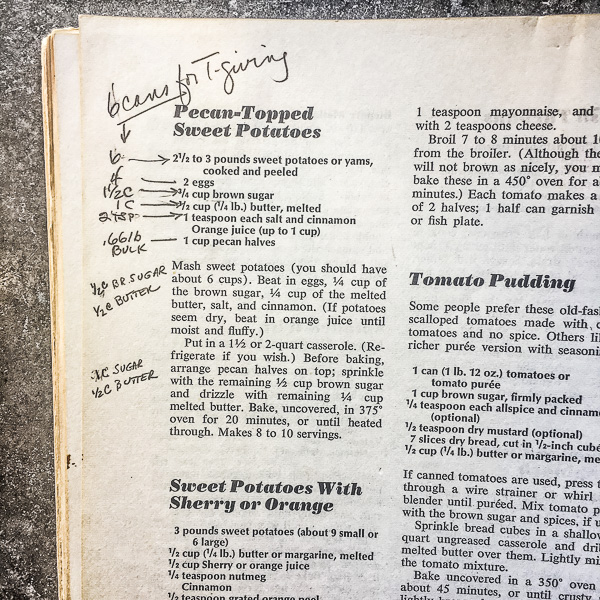 6 cans for T-giving
Pecan-Topped
Sweet Potatoes
6 2½ to 3 pounds sweet potatoes or yams,
cooked and peeled
4 2 eggs
1½C ¾ cup brown sugar
1C ½ cup (¼ lb.) butter, melted
2 tsp 1 teaspoon each salt and cinnamon
Orange juice (up to 1 cup)
.66 lb 1 cup pecan halves
BULK
Mash sweet potatoes (you should have
about 6 cups). Beat in eggs, ¼ cup of
½C BR SUGAR the brown sugar, ¼ cup of the melted
½C BUTTER butter, salt, and cinnamon. (If potatoes
seem dry, beat in orange juice until
moist and fluffy.)
Put in a 1½ or 2-quart casserole. (Re-
frigerate if you wish.) Before baking,
arrange pecan halves on top; sprinkle
SUGAR with the remaining ½ cup brown sugar
½C BUTTER and drizzle with remaining ¼ cup
melted butter. Bake, uncovered, in 375°
oven for 20 minutes, or until heated
through. Makes 8 to 10 servings.
Sweet Potatoes With
Sherry or Orange
3 pounds sweet potatoes (about 9 small or
6 large)
½ cup (¼ lb.) butter or margarine, melted
½ cup Sherry or orange juice
¼ teaspoon nutmeg
Cinnamon
½ teaspoon grated orange peel
1 teaspoon mayonnaise, and
with 2 teaspoons cheese.
Broil 7 to 8 minutes about
from the broiler. (Although the
will not brown as nicely, you
bake these in a 450° oven for
minutes.) Each tomato makes a
of 2 halves; 1 half can garnish
or fish plate.
Tomato Pudding
Some people prefer these old-fash
scalloped tomatoes made with
tomatoes and no spice. Others li
richer purée version with seasoni
1 can (1 lb. 12 oz.) tomatoes or
tomato purée
1 cup brown sugar, firmly packed
¼ teaspoon each allspice and cinnamo
(optional)
½ teaspoon dry mustard (optional)
7 slices dry bread, cut in ½-inch cube
½ cup (¼ lb.) butter or margarine, me
If canned tomatoes are used, press t
through a wire strainer or whirl
blender until puréed. Mix tomato p
with the brown sugar and spices, if u
Sprinkle bread cubes in a shallow
quart ungreased casserole and dri
melted butter over them. Lightly mi
the tomato mixture.
Bake uncovered in a 350° oven
about 45 minutes, or until crusty